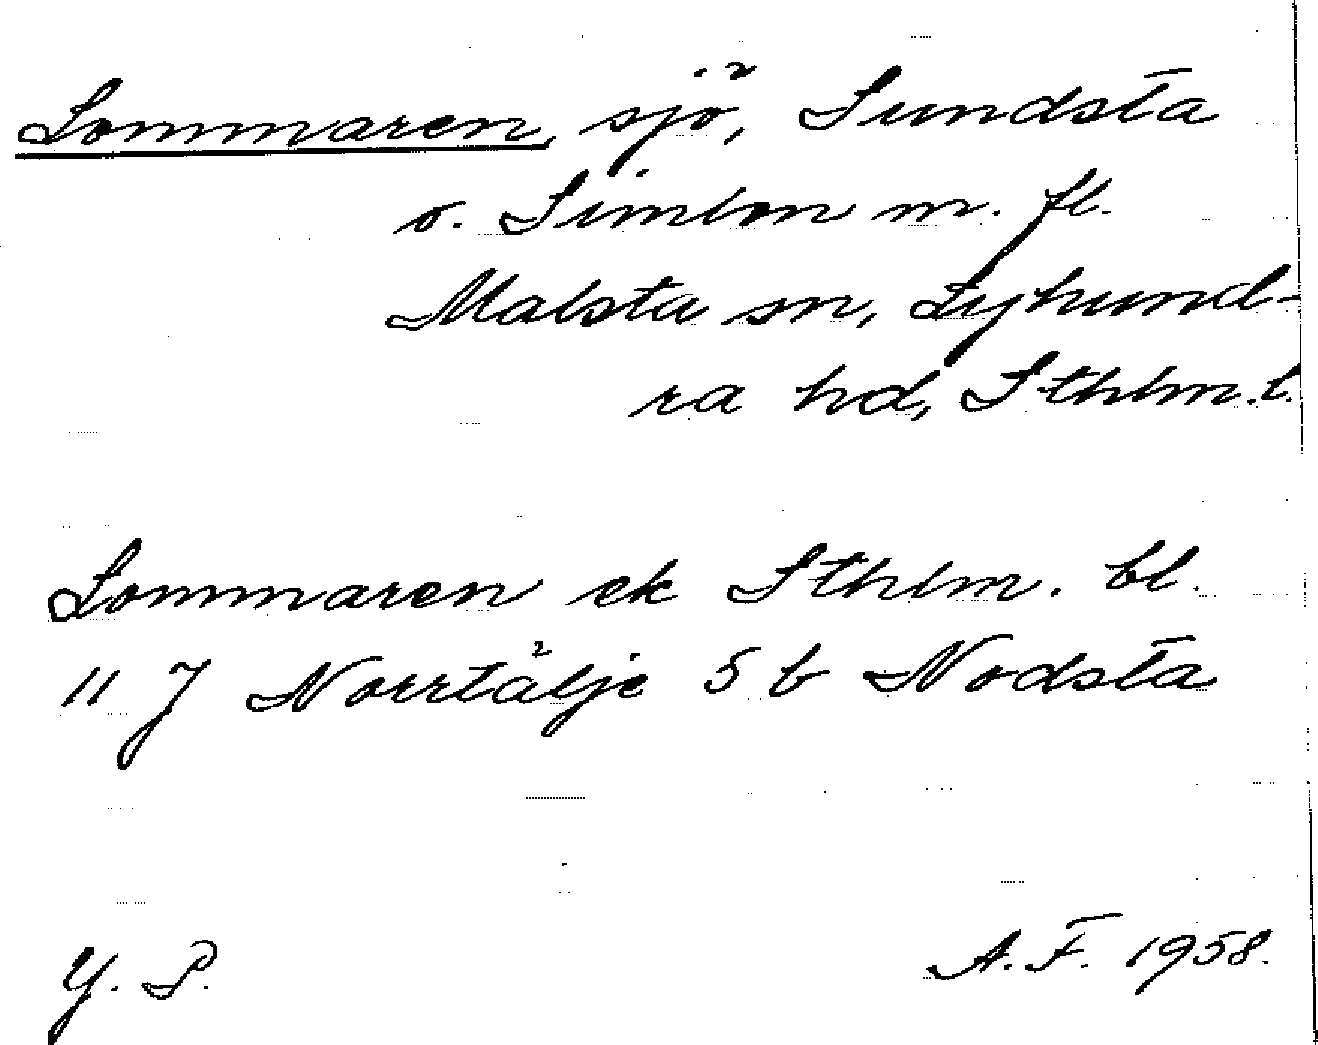 Lommaren, sjö, Sundsta
o. Simlon m. fl.
Malsta sn, Lyhund-
ra hd, Sthlm.l.
Lommaren ek Sthlm. bl.
11 J Norrtälje 5 b Nodsta
Y. P. A.F. 1958.